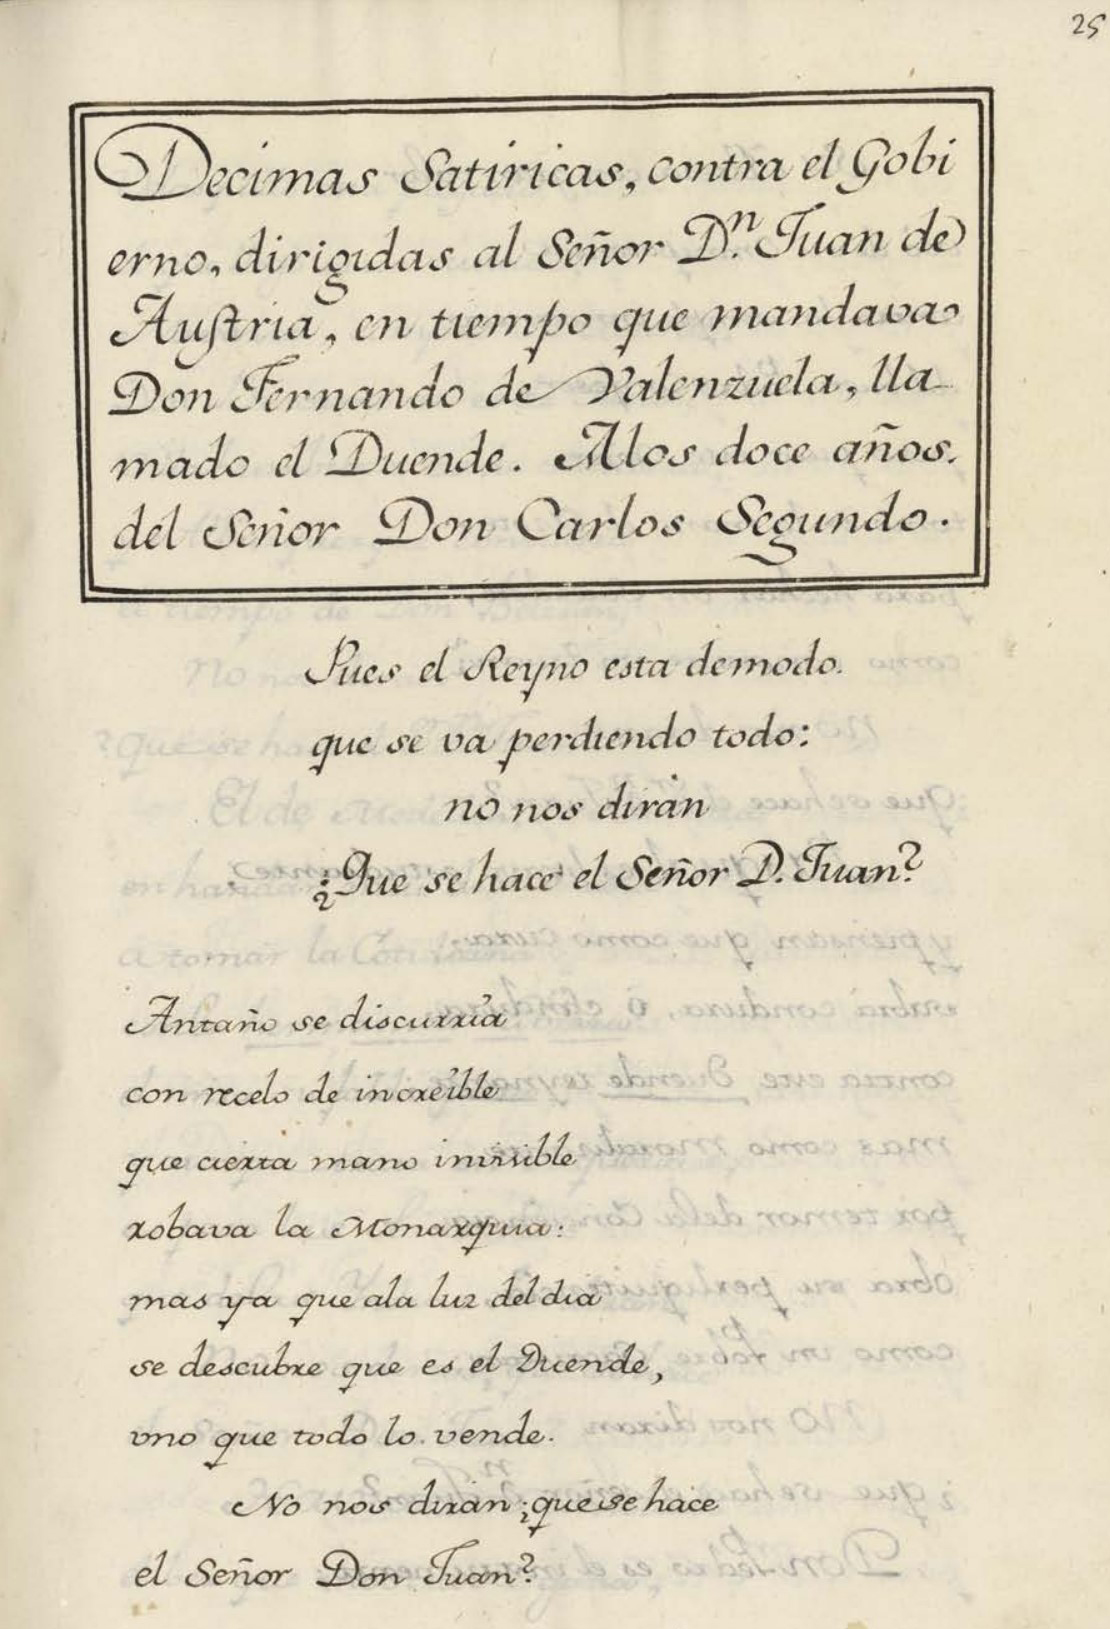 25
Decimas Satiricas, contra el Gobi
erno, dirigidas al Señor D.ⁿ Juan de
Austria, en tiempo que mandava
Don Fernando de Valenzuela, lla-
mado el Duende. Alos doce años.
del Señor Don Carlos Segundo.
Pues el Reyno esta demodo.
que se va perdiendo todo:
no nos dirán
¿Que se hace el Señor D. Juan?
Antaño se discurría
con recelo de increíble
que cierta mano invisible
robava la Monarquia:
mas ya que ala luz del dia
se descubre que es el Duende,
vno que todo lo vende.
No nos dirán ¿que se hace
el Señor Don Juan?